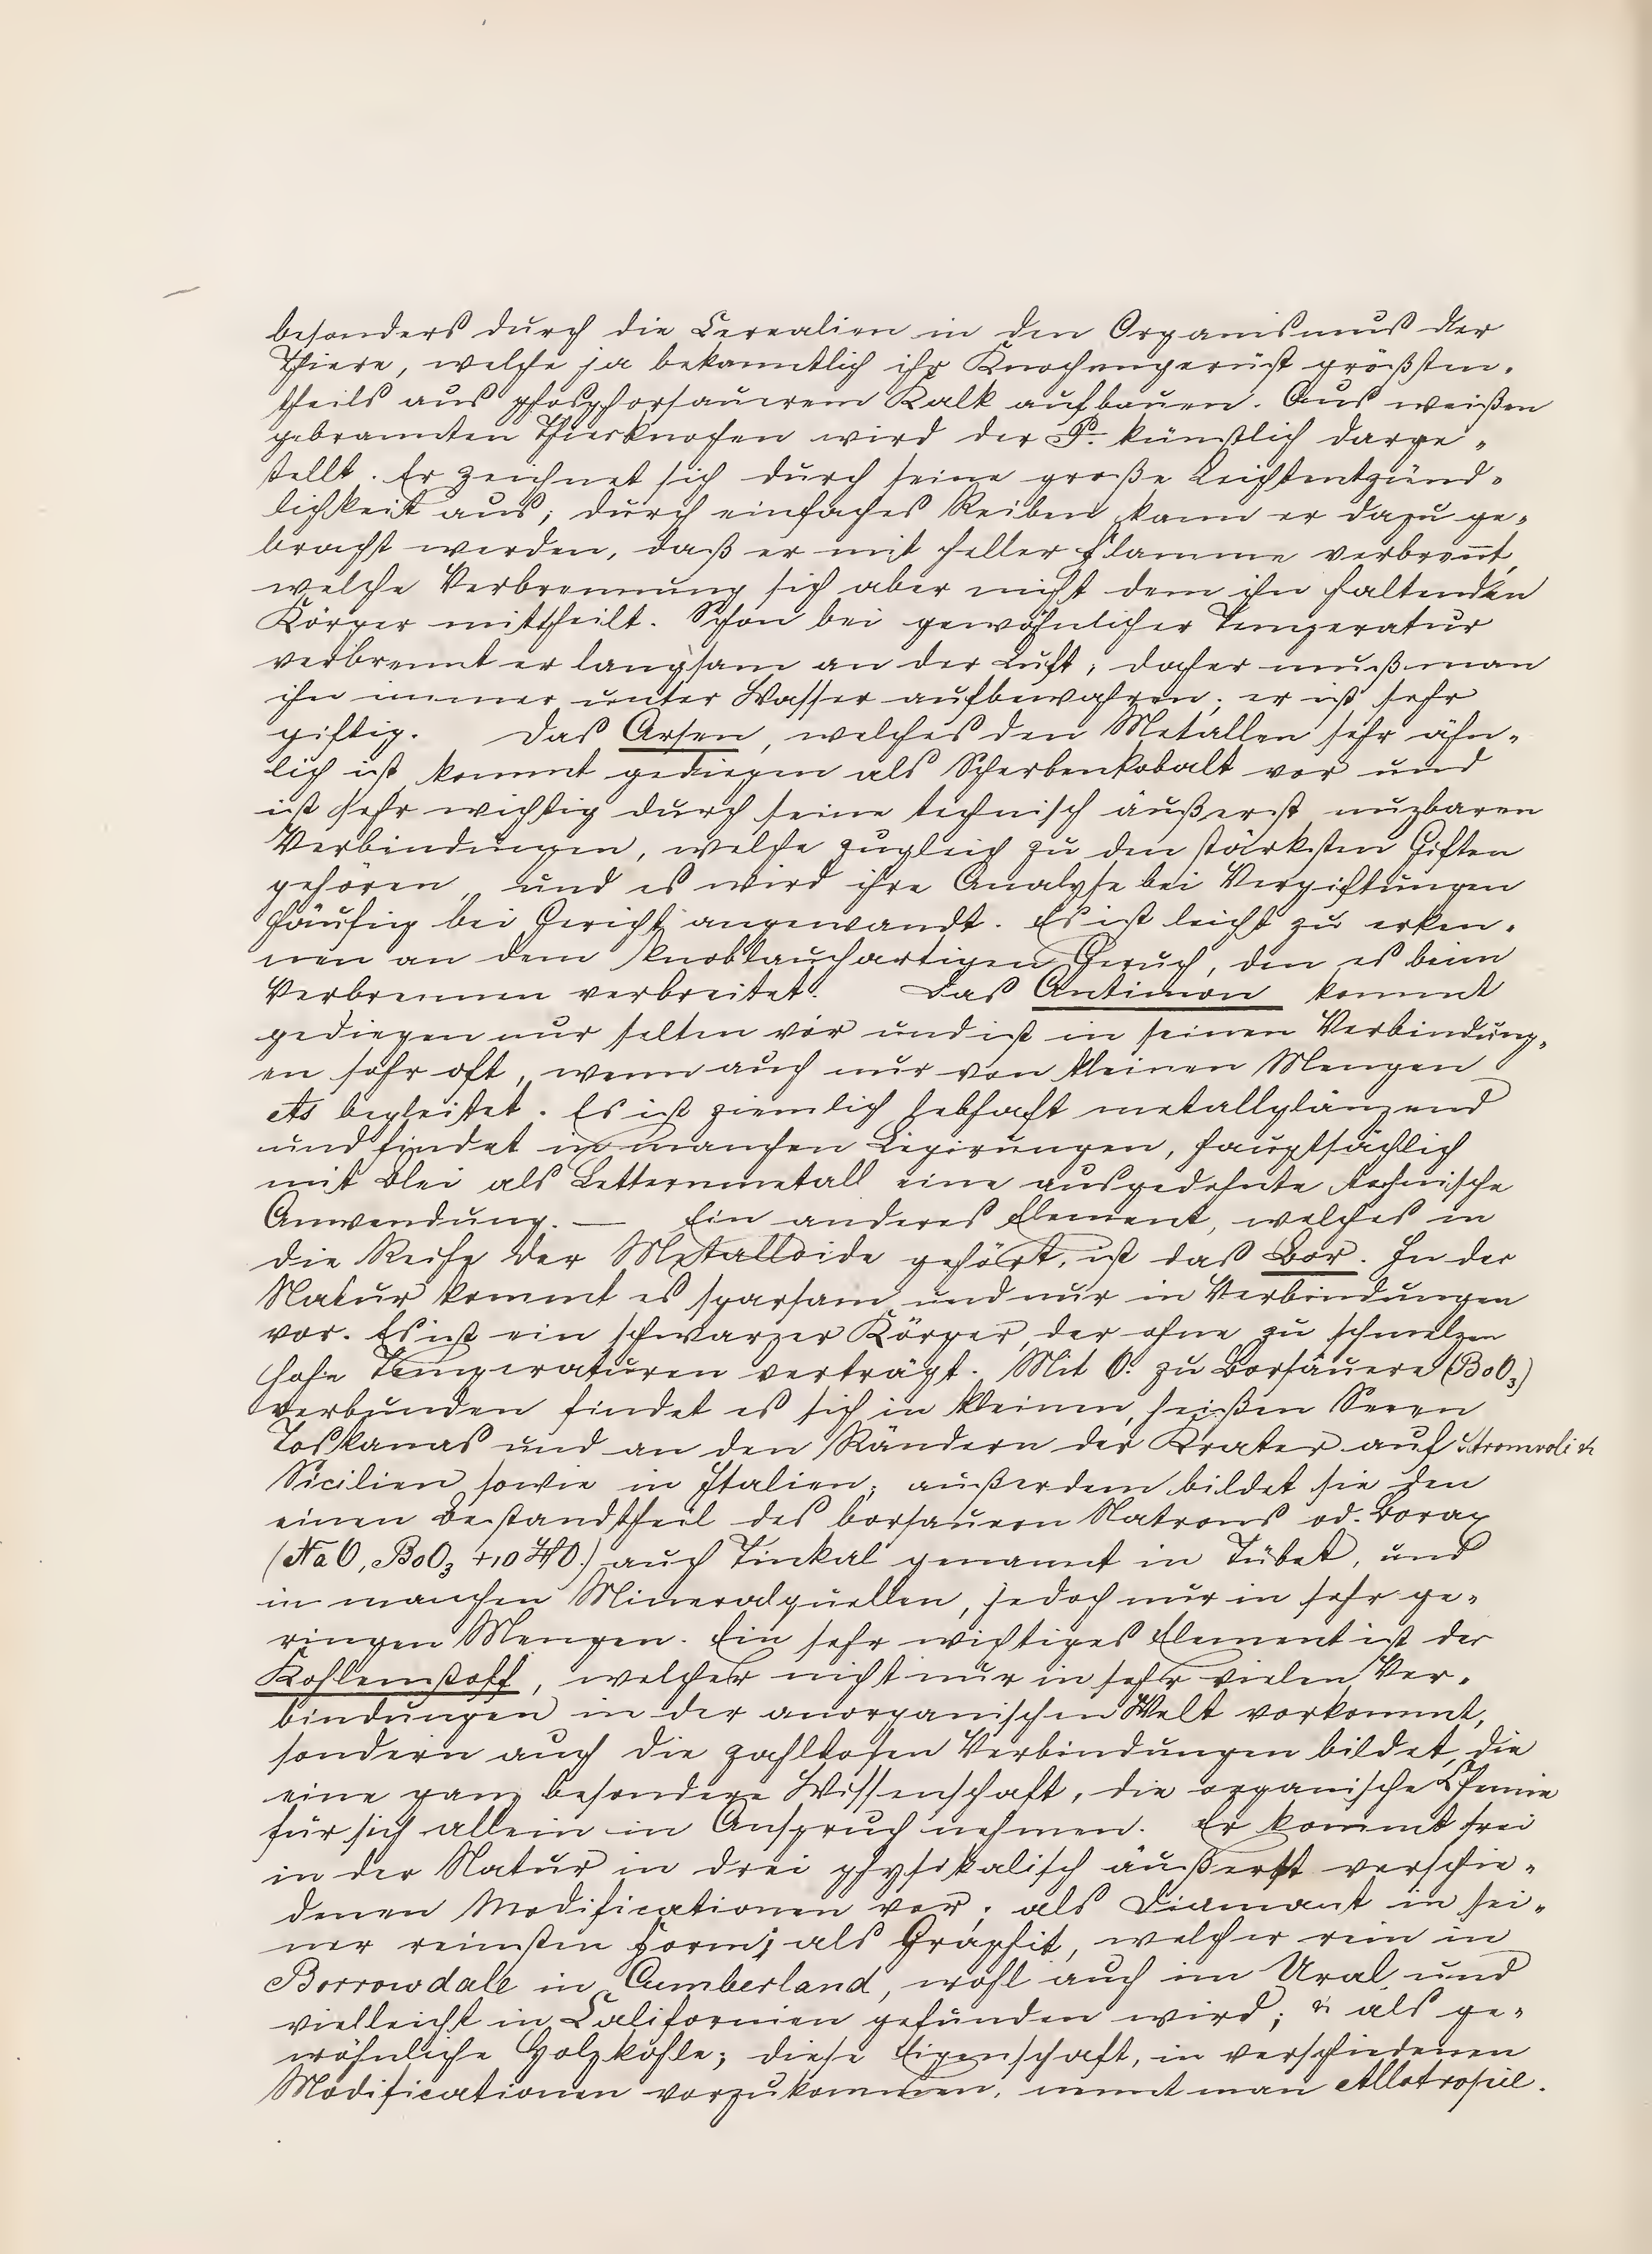 besonders durch die Cerealien in den Organismus der
Thiere, welche ja bekanntlich ihr Knochengerüst größten-
theils aus phosphorsauerem Kalk aufbauen. Aus weißen
gebrannten Thierknochen wird der P. künstlich darge-
stellt. Er zeichnet sich durch seine große Leichtentzünd-
lichkeit aus; durch einfaches Reiben kann er dazu ge-
bracht werden, daß er mit heller Flamme verbrennt,
welche Verbrennung sich aber nicht dem ihn haltenden
Körper mittheilt. Schon bei gewöhnlicher Temperatur
verbrennt er langsam an der Luft; daher muß man
ihn immer unter Wasser aufbewahren; er ist sehr
giftig. Das Arsen, welches den Metallen sehr ähn-
lich ist kommt gediegen als Scherbenkobalt vor und
ist sehr wichtig durch seine technisch äußerst nuzbaren
Verbindungen, welche zugleich zu den stärksten Giften
gehören, und es wird ihre Analyse bei Vergiftungen
häufig bei Gericht angewandt. Es ist leicht zu erken-
nen an dem knoblauchartigen Geruch, den es beim
Verbrennen verbreitet. Das Antimon kommt
gediegen nur selten vor und ist in seinen Verbindung-
en sehr oft, wenn auch nur von kleinen Mengen
As begleitet. Es ist ziemlich lebhaft metallglänzend
und findet in manchen Legirungen, hauptsächlich
mit Blei als Letternmetall eine ausgedehnte technische
Anwendung. — Ein anderes Element, welches in
die Reihe der Metalloide gehört, ist das Bor. In der
Natur kommt es sparsam und nur in Verbindungen
vor. Es ist ein schwarzer Körper, der ohne zu schmelzen
hohe Temperaturen verträgt. Mit O. zu Borsäuere (BoO₃)
verbunden findet es sich in kleinen, heißen Seeen
Toskanas und an den Rändern der Krater auf Stromboli &
Sicilien sowie in Italien; außerdem bildet sie den
einen Bestandtheil des borsauern Natrons od. Borax
(NaO, BoO₃ + 10 HO.) auch Tinkal genannt in Tübet, und
in manchen Mineralquellen, jedoch nur in sehr ge-
ringen Mengen. Ein sehr wichtiges Element ist der
Kohlenstoff, welcher nicht nur in sehr vielen Ver-
bindungen in der anorganischen Welt vorkommt,
sondern auch die zahllosen Verbindungen bildet, die
eine ganz besondere Wissenschaft, die organische Chemie
für sich allein in Anspruch nehmen. Er kommt frei
in der Natur in drei physikalisch äußerst verschie-
denen Modificationen vor; als Diamant in sei-
ner reinsten Form; als Graphit, welcher rein in
Borrowdale in Cumberland, wohl auch im Ural und
vielleicht in Californien gefunden wird; & als ge-
wöhnliche Holzkohle; diese Eigenschaft, in verschiedenen
Modificationen vorzukommen, nennt man Allotropie.